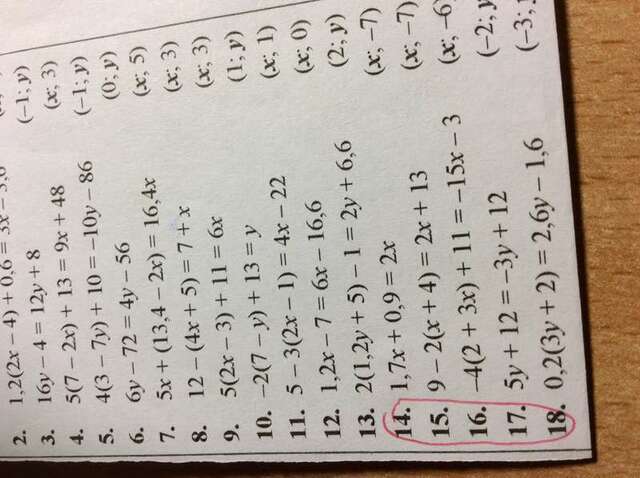 2. 1,2(2x – 4) + 0,6 = 3x – 3,6
3. 16y – 4 = 12y + 8 (–1; y)
4. 5(7 – 2x) + 13 = 9x + 48 (x; 3)
5. 4(3 – 7y) + 10 = –10y – 86 (–1; y)
6. 6y – 72 = 4y – 56 (0; y)
7. 5x + (13,4 – 2x) = 16,4x (x; 5)
8. 12 – (4x + 5) = 7 + x (x; 3)
9. 5(2x – 3) + 11 = 6x (x; 3)
10. –2(7 – y) + 13 = y (1; y)
11. 5 – 3(2x – 1) = 4x – 22 (x; 1)
12. 1,2x – 7 = 6x – 16,6 (x; 0)
13. 2(1,2y + 5) – 1 = 2y + 6,6 (2; y)
14. 1,7x + 0,9 = 2x (x; –7)
15. 9 – 2(x + 4) = 2x + 13 (x; –7)
16. –4(2 + 3x) + 11 = –15x – 3 (x; –6)
17. 5y + 12 = –3y + 12 (–2; y
18. 0,2(3y + 2) = 2,6y – 1,6 (–3;